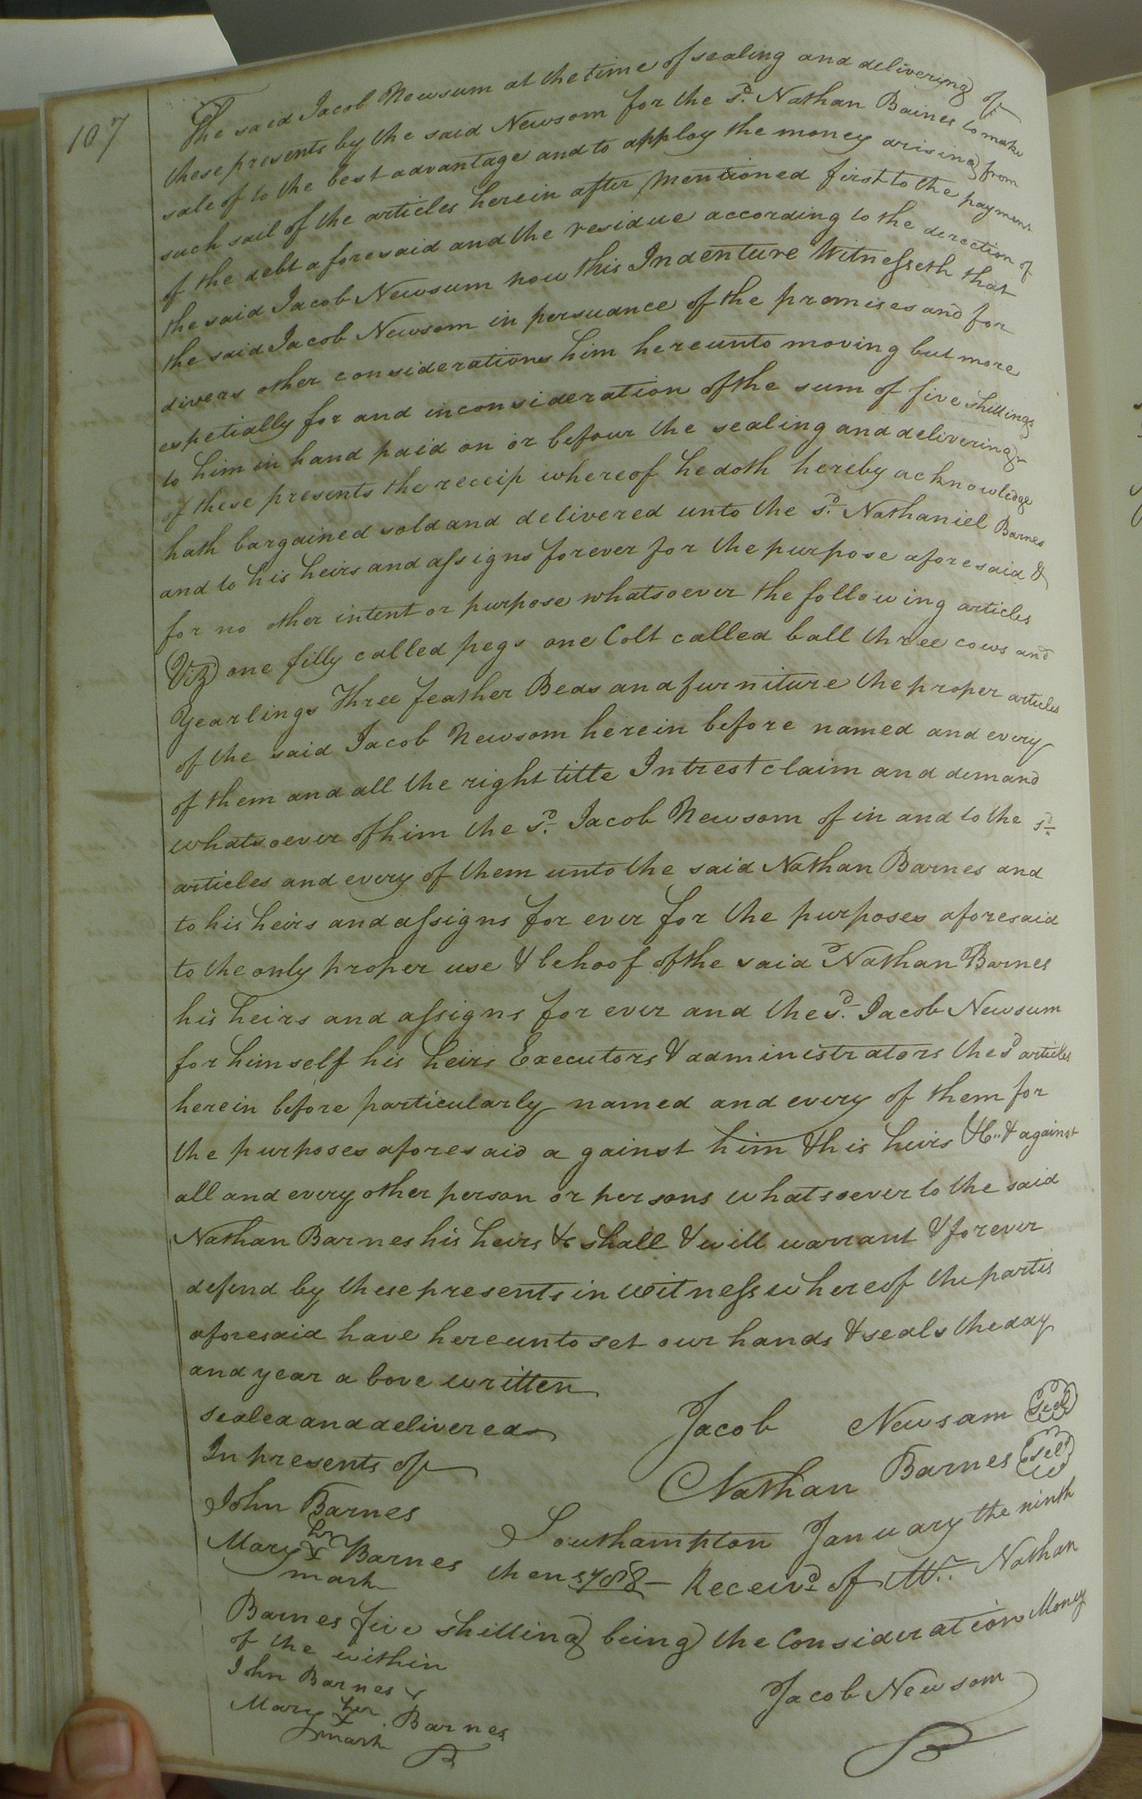 107
The said Jacob Newsum at the time of sealing and delivering of
these presents by the said Newsom for the sd. Nathan Baines to make
sale of to the best advantage and to apploy the money arising from
such sail of the articles herein after mentioned first to the payment
of the debt aforesaid and the residue according to the derection of
the said Jacob Newsum now this Indenture Witnesseth that
the said Jacob Newsom in persuance of the promises and for
divers other considerations him hereunto moving but more
espetially for and inconsideration of the sum of five shillings
to him in hand paid on or befour the sealing and delivering
of these presents the receip whereof he doth hereby acknowledge
hath bargained sold and delivered unto the sd. Nathaniel Barnes
and to his heirs and assigns forever for the purpose aforesaid &
for no other intent or purpose whatsoever the following articles
(Viz) one filly called pegs one Colt called ball three cows and
Yearlings Three feather Beds and furniture the proper articles
of the said Jacob Newsom herein before named and every
of them and all the right title Intrest claim and demand
whatsoever of him the sd. Jacob Newsom of in and to the sd
articles and every of them unto the said Nathan Barnes and
to his heirs and assigns for ever for the purposes aforesaid
to the only proper use & behoof of the said Nathan Barnes
his heirs and assigns for ever and the sd. Jacob Newsum
for himself his heirs Executors & administrators the sd articles
herein before particularly named and every of them for
the purposes aforesaid a gainst him & his heirs &c.. & against
all and every other person or persons whatsoever to the said
Nathan Barnes his heirs &c shall & will warrant & forever
defend by these presents in witness whereof the partis
aforesaid have hereunto set our hands & seals the day
and year a bove written
sealed and delivered
In presents of
Jacob Newsam Seal
Nathan Barnes Seal
John Barnes
Mary her x Barnes
mark
Southampton January the ninth
then 1788 — Receivd of Mr. Nathan
Barnes five shilling being the Consideration Money
of the within
John Barnes
Mary her x Barnes
mark
Jacob Newsom